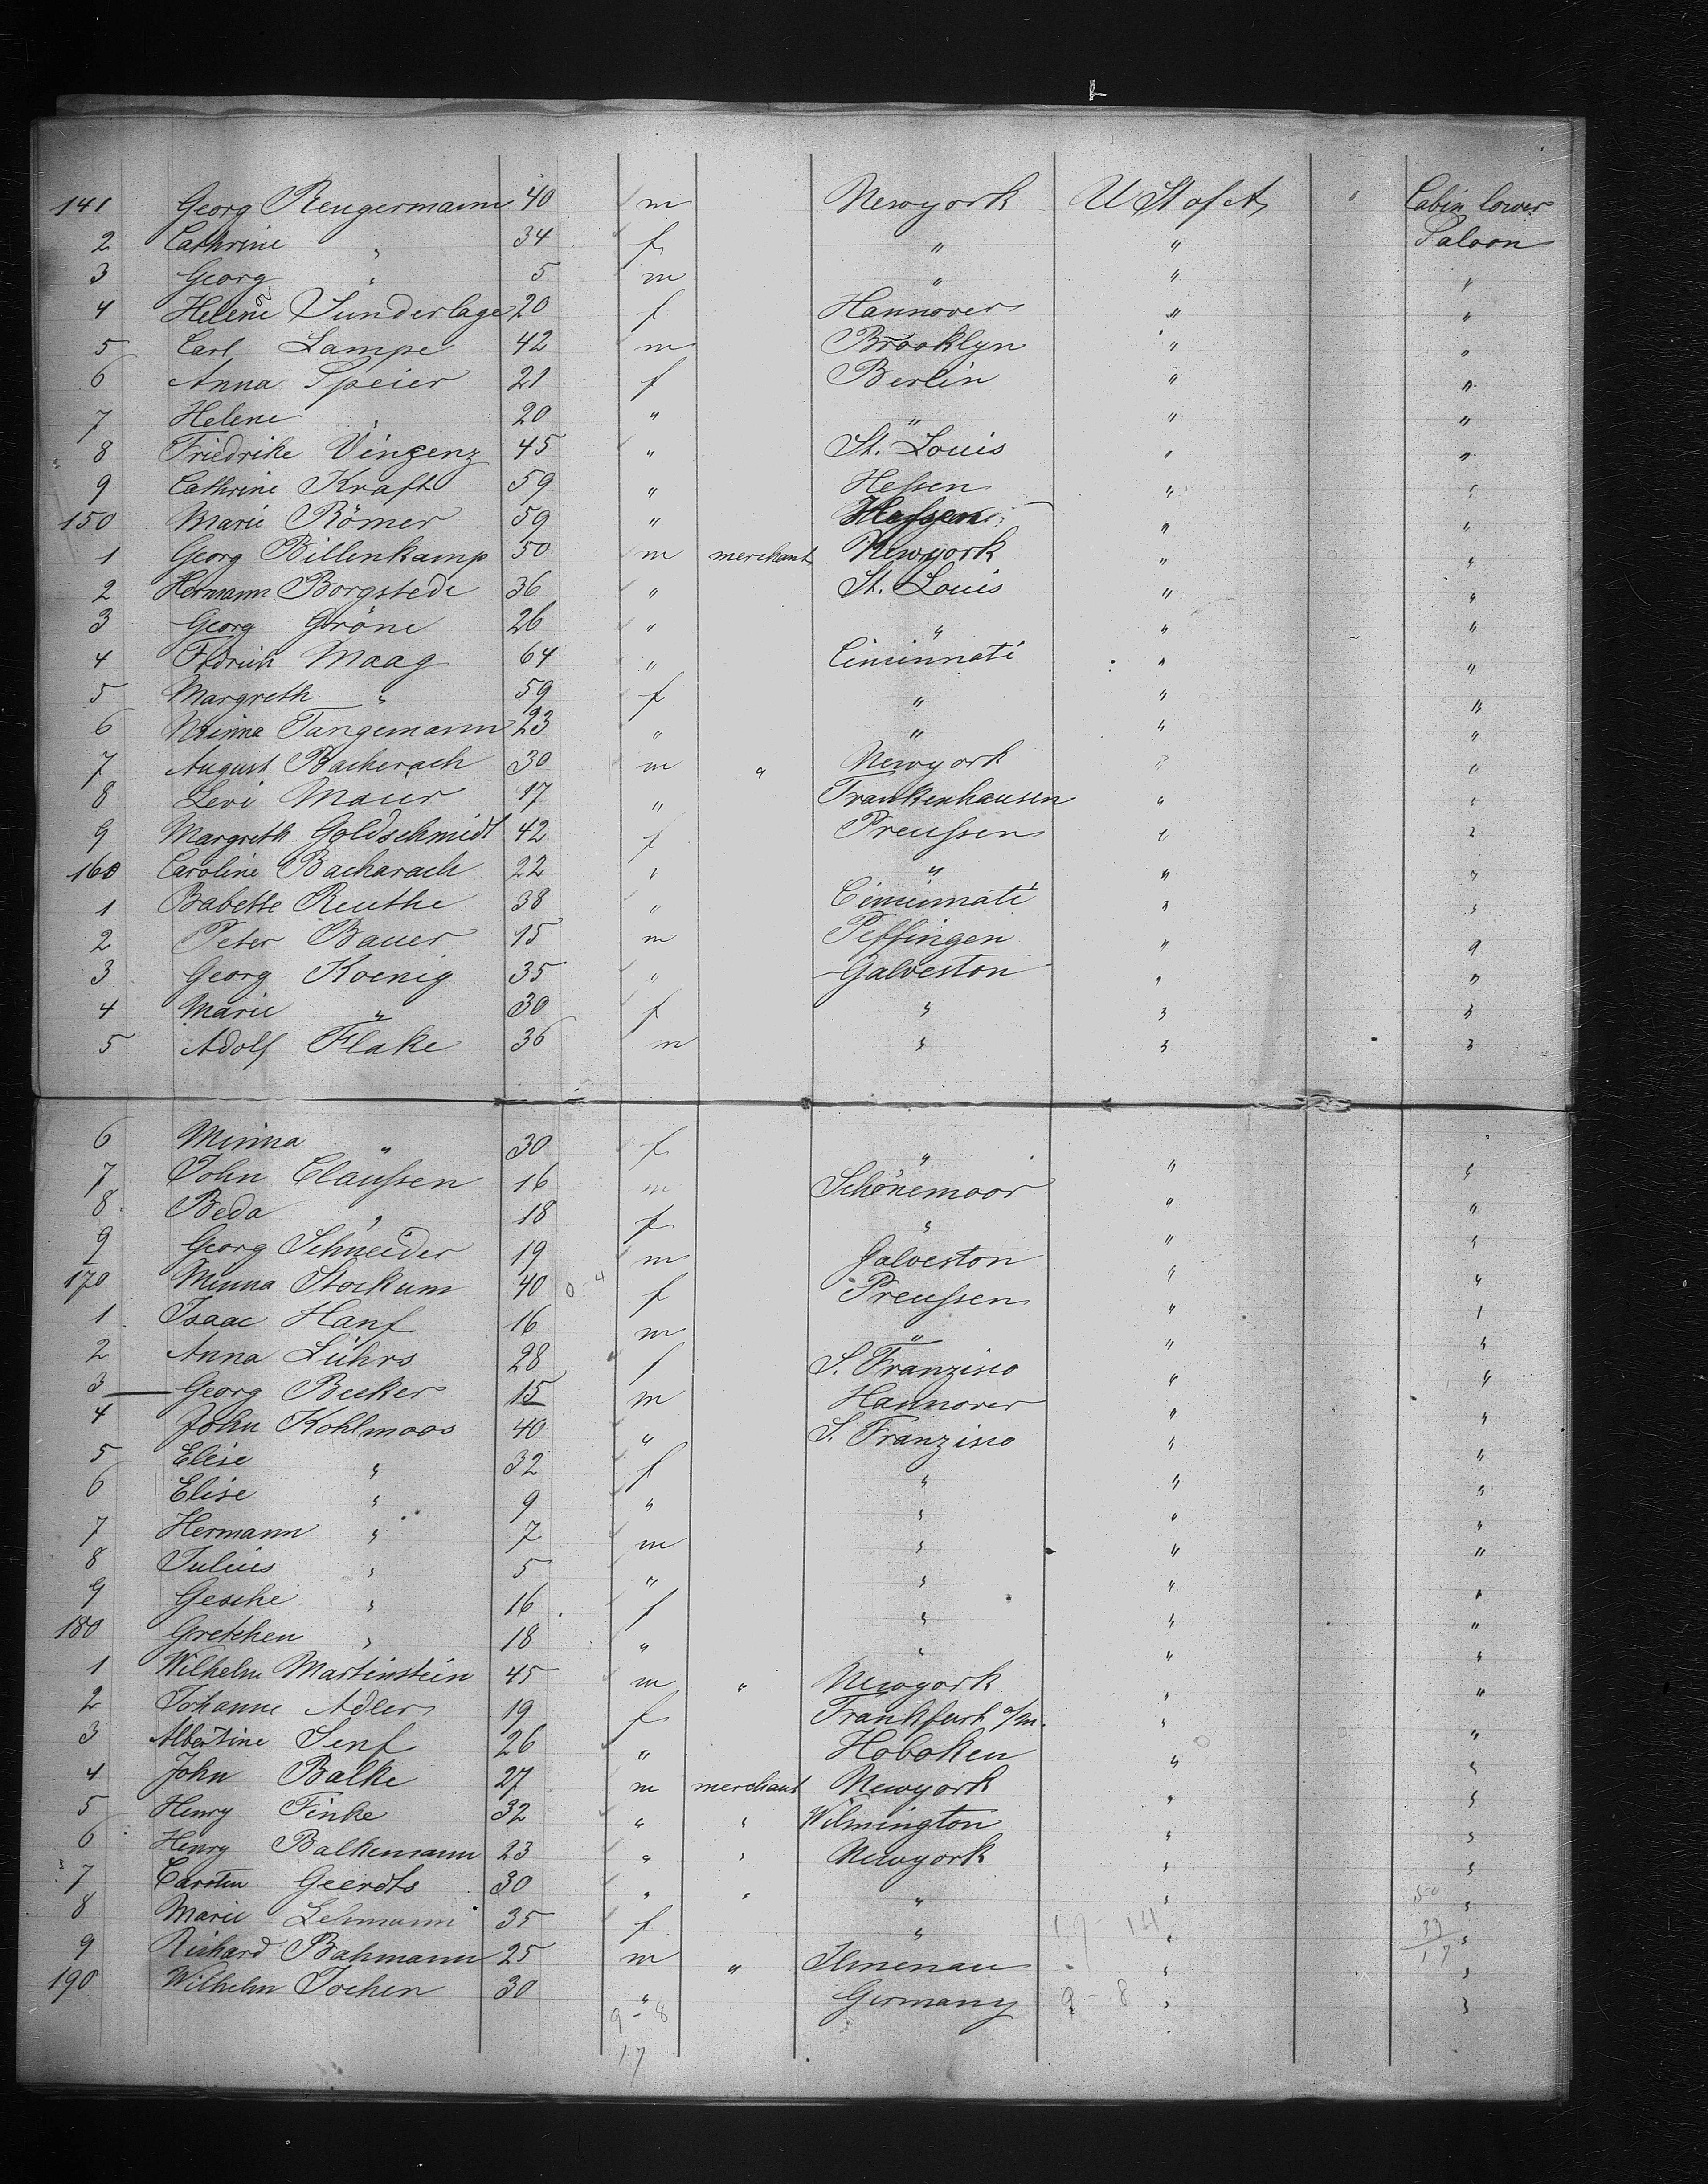 141 Georg Rengermann 40 m Newyork U St of A " Cabin lower
2 Cathrine " 34 f " " Saloon
3 Georg " 5 m " " "
4 Helene Sunderlage 20 f Hannover " "
5 Carl Lampe 42 m Brooklyn " "
6 Anna Speier 21 f Berlin " "
7 Helene " 20 " " " "
8 Friedrike Vinzenz 45 " St. Louis " "
9 Cathrine Kraft 59 " Hessen " "
150 Marie Römer 59 " Hessen " "
1 Georg Billenkamp 50 m merchant Newyork " "
2 Hermann Borgstede 36 " St. Louis " "
3 Georg Gröne 26 " " " "
4 Fridrich Maag 64 " Cincinnati " "
5 Margreth " 59 f " " "
6 Minna Tangemann 23 " " " "
7 August Bacherach 30 m " Newyork " "
8 Levi Maier 17 " Frankenhausen " "
9 Margreth Goldschmidt 42 f Preussen " "
160 Caroline Bacharach 22 " " " "
1 Babette Reuthe 38 " Cincinnati " "
2 Peter Bauer 15 m Peffingen " "
3 Georg Koenig 35 " Galveston " "
4 Marie " 30 f " " "
5 Adolf Flake 36 m " " "
6 Minna " 30 f " " "
7 John Claussen 16 m Schönemoor " "
8 Beda " 18 f " " "
9 Georg Schneider 19 m Galveston " "
170 Minna Stockum 40 0-4 f Preussen " "
1 Isaac Hanf 16 m " " "
2 Anna Lührs 28 f S. Franzisco " "
3 Georg Becker 15 m Hannover " "
4 John Kohlmoos 40 " S. Franzisco " "
5 Elise " 32 f " " "
6 Elise " 9 " " " "
7 Hermann " 7 m " " "
8 Julius " 5 " " " "
9 Gesche " 16 f " " "
180 Gretchen " 18 " " " "
1 Wilhelm Martinstein 45 m " Newyork " "
2 Johanne Adler 19 f Frankfurt a/m. " "
3 Albertine Senf 26 " Hoboken " "
4 John Balke 27 m merchant Newyork " "
5 Henry Finke 32 " " Wilmington " "
6 Henry Balkemann 23 " " Newyork " "
7 Carsten Geerdts 30 " " " " "
8 Marie Lehmann 35 f " 19-14 " "
9 Richard Bahmann 25 m " Ilmenau " "
190 Wilhelm Jochen 30 " Germany 9-8 " "
9-8
17
50
33
17